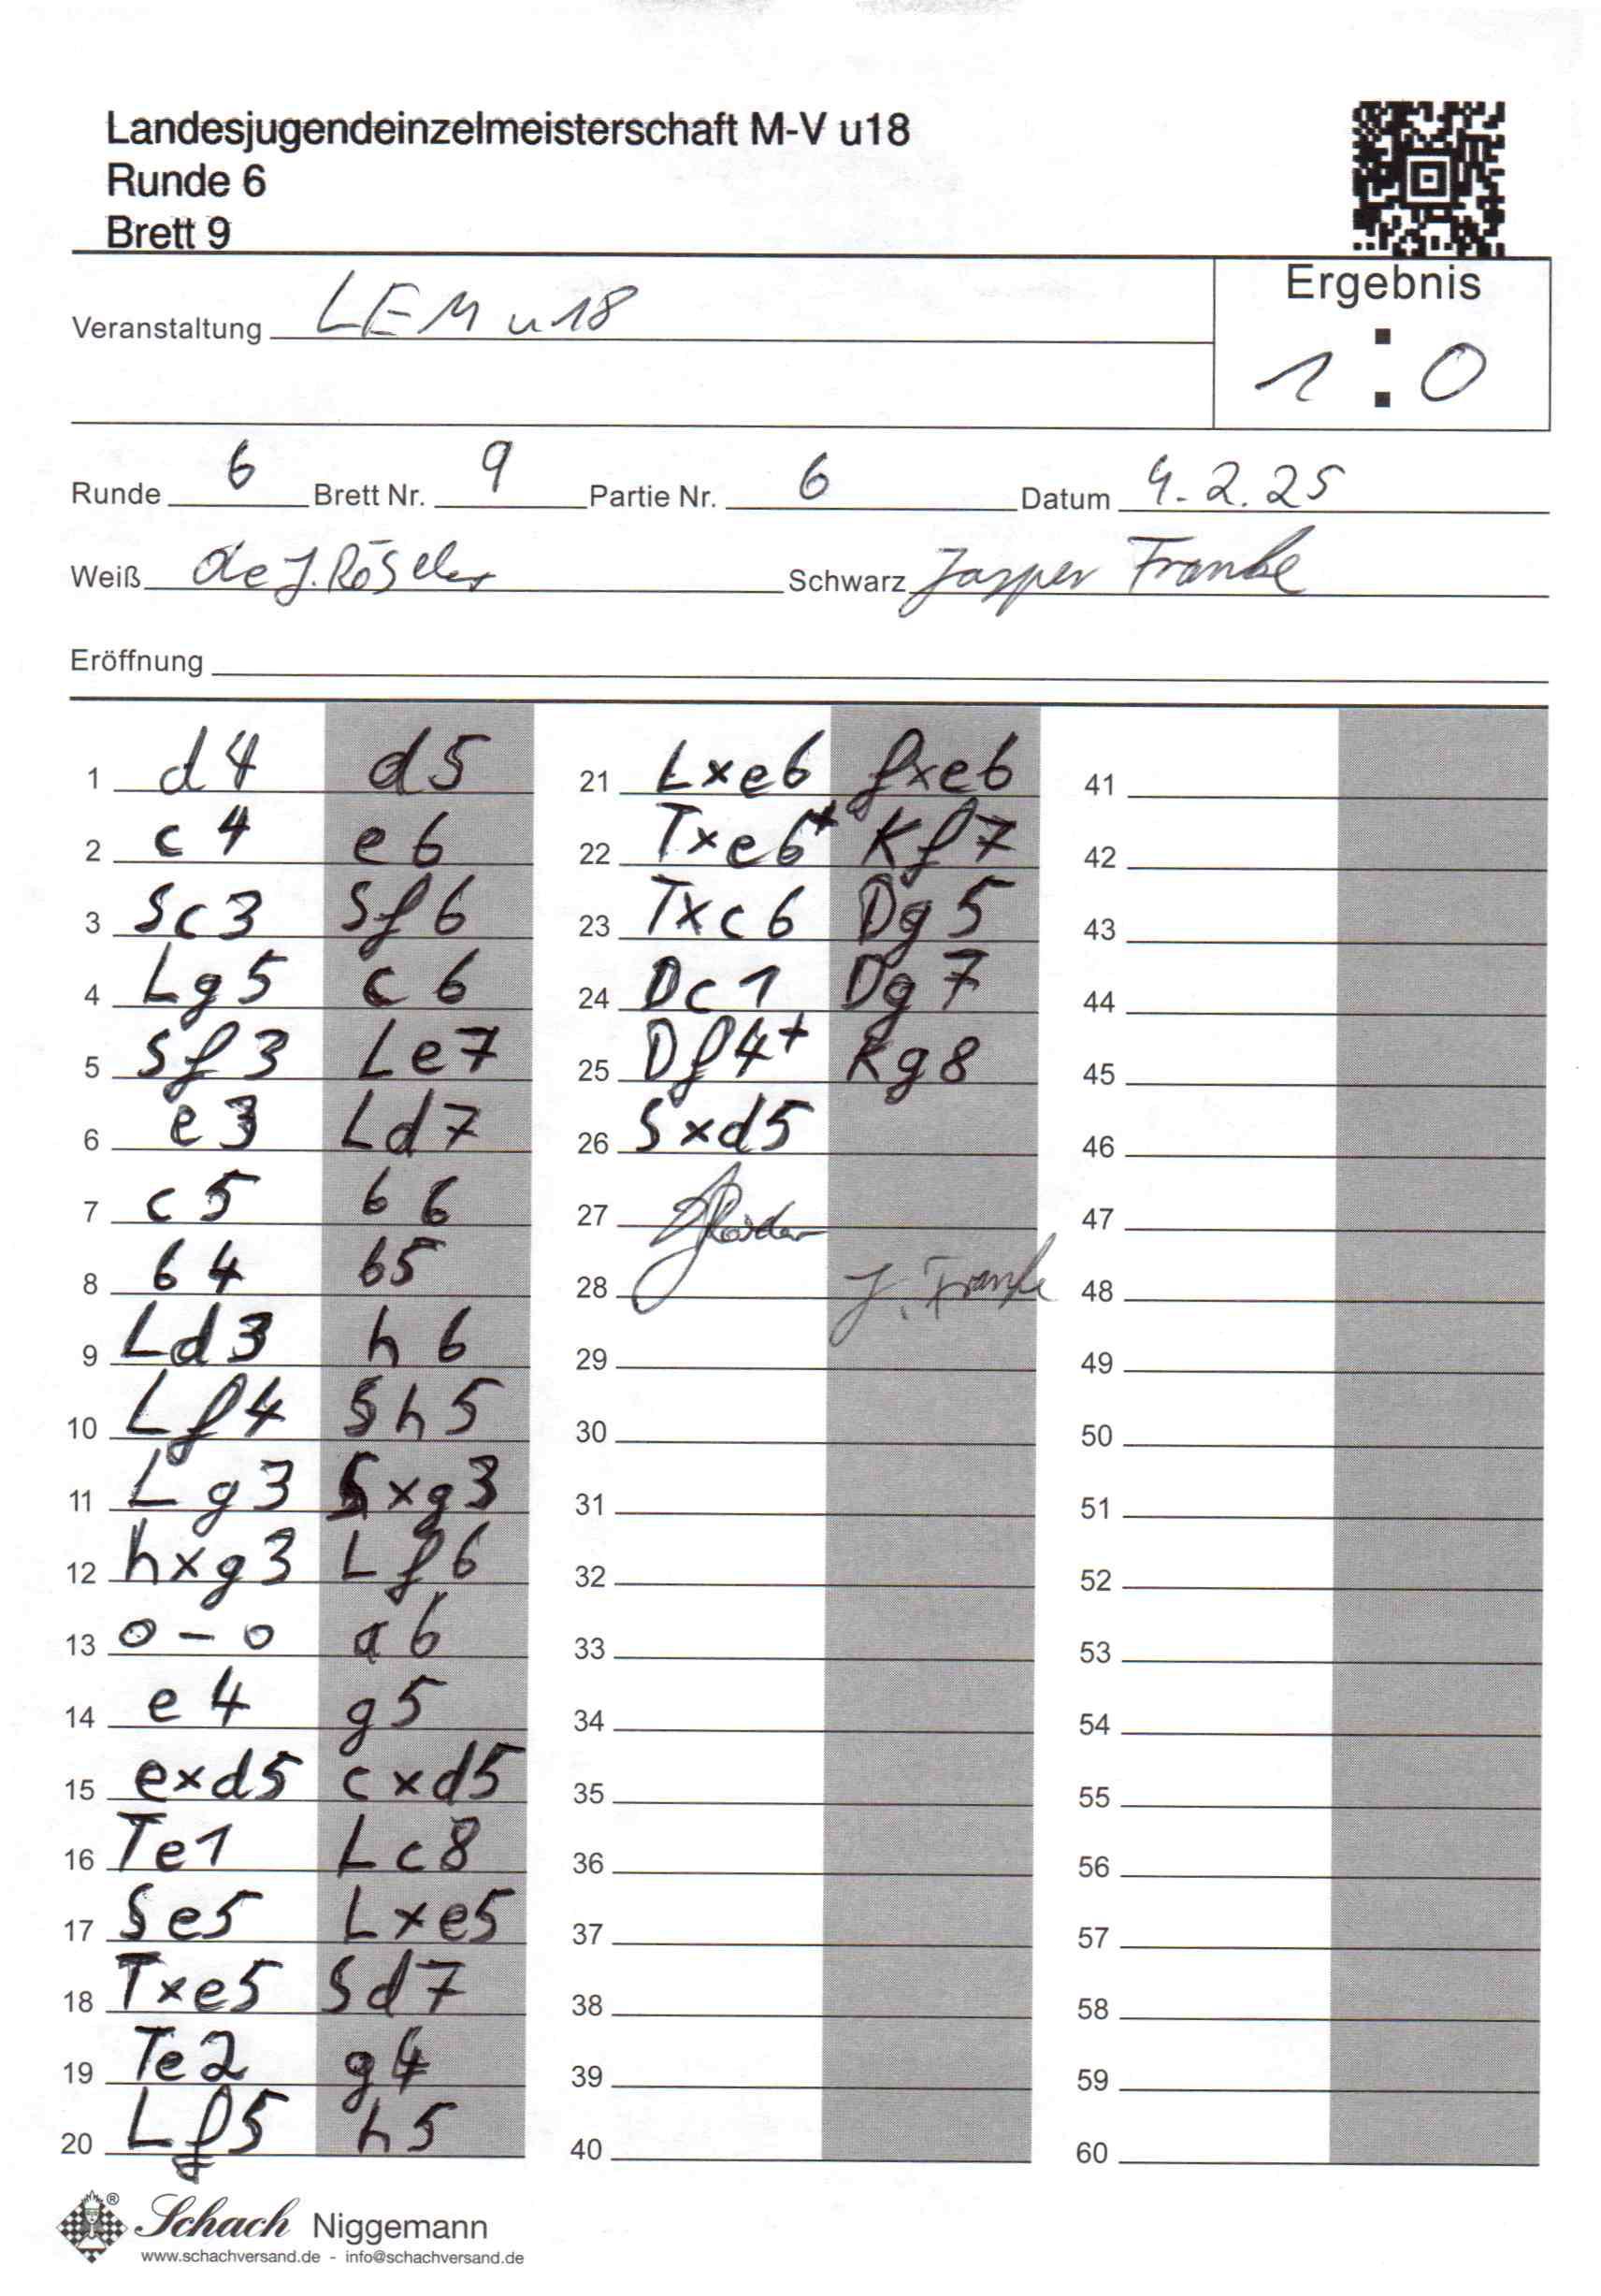 Landesjugendeinzelmeisterschaft M-V u18
Runde 6
Brett 9
Ergebnis
Veranstaltung LEM u18
1 : 0
Runde 6 Brett Nr. 9 Partie Nr. 6 Datum 4.2.25
Weiß J. Röseler Schwarz Jasper Franke
Eröffnung
1 d4 d5
2 c4 e6
3 Sc3 Sf6
4 Lg5 c6
5 Sf3 Le7
6 e3 Ld7
7 c5 b6
8 b4 b5
9 Ld3 h6
10 Lf4 Sh5
11 Lg3 Sxg3
12 hxg3 Lf6
13 0-0 a6
14 e4 g5
15 exd5 cxd5
16 Te1 Lc8
17 Se5 Lxe5
18 Txe5 Sd7
19 Te2 g4
20 Lf5 h5
21 Lxe6 fxe6
22 Txe6+ Kf7
23 Txc6 Dg5
24 Dc1 Dg7
25 Df4+ Kg8
26 Sxd5
27
28 J. Franke
29
30
31
32
33
34
35
36
37
38
39
40
41
42
43
44
45
46
47
48
49
50
51
52
53
54
55
56
57
58
59
60
® Schach Niggemann
www.schachversand.de - info@schachversand.de